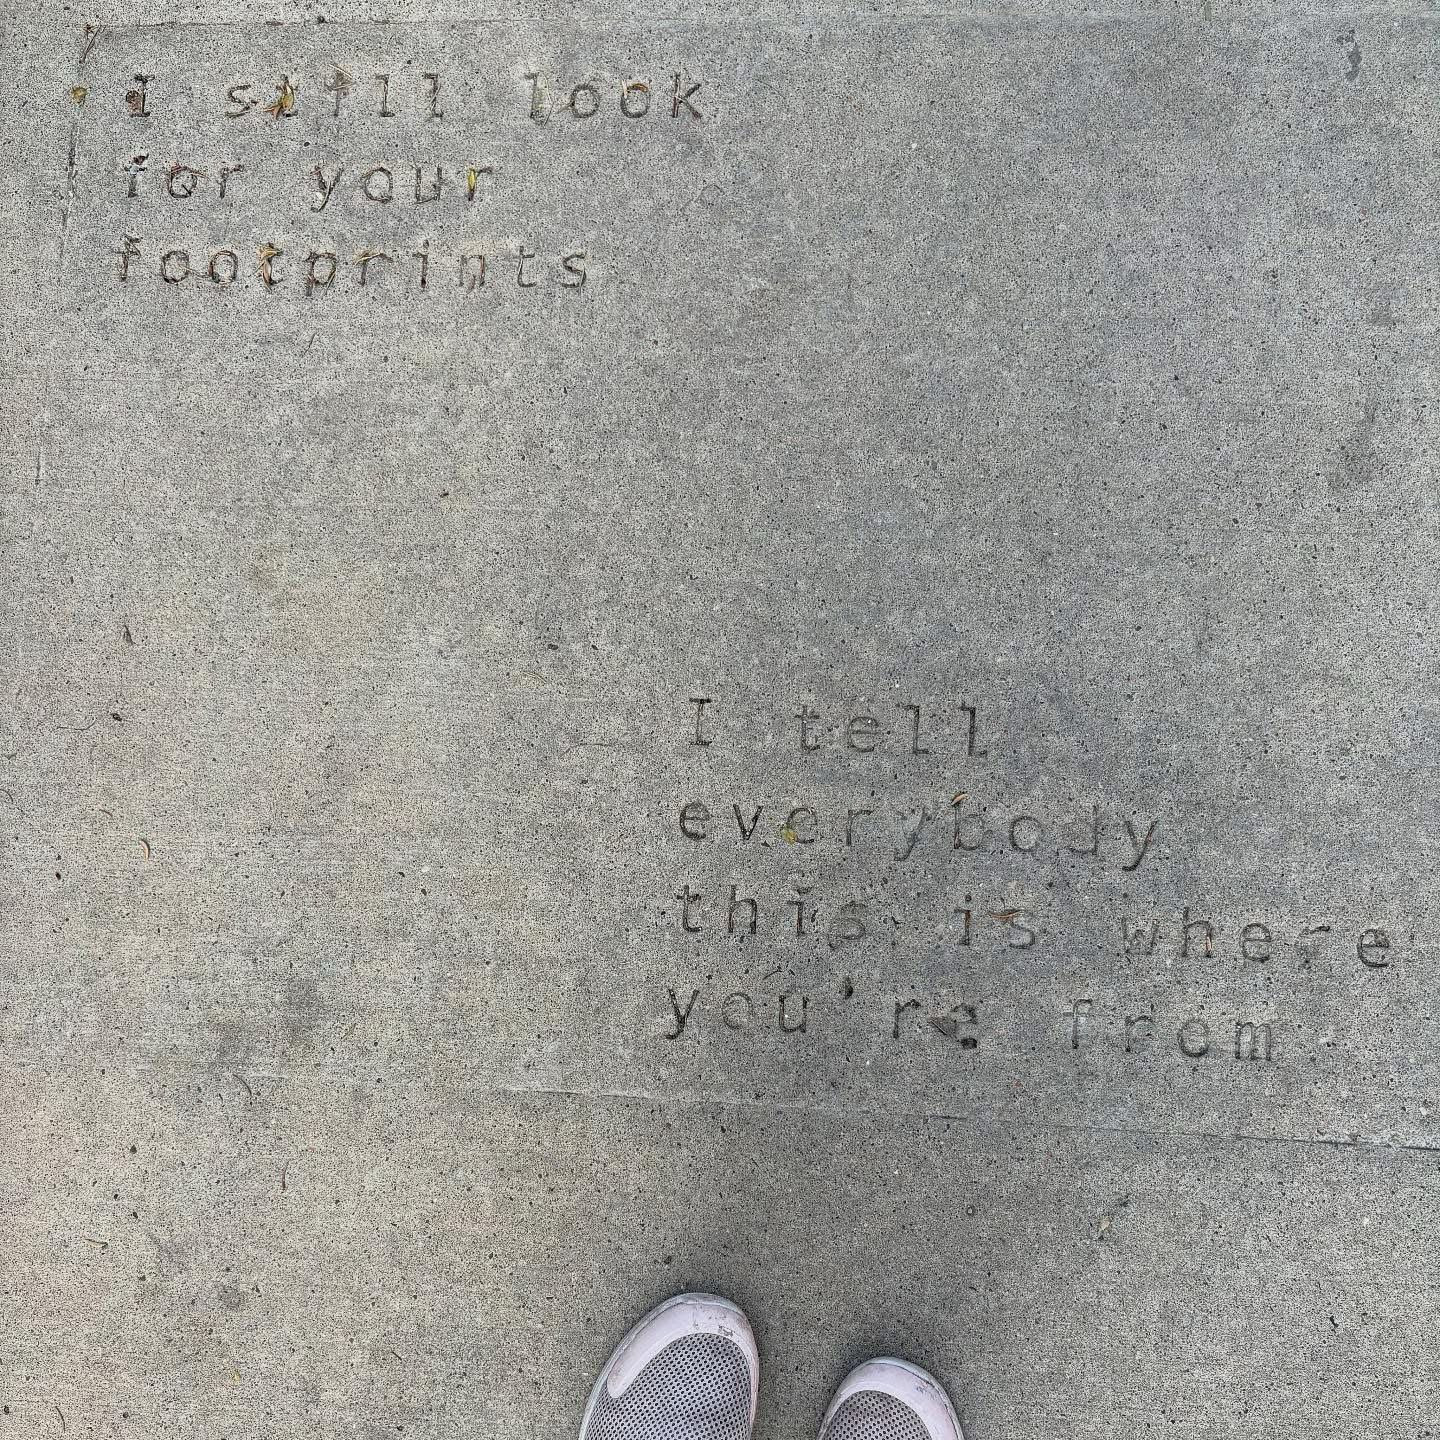 I still look
for your
footprints
I tell
everybody
this is where
you're from